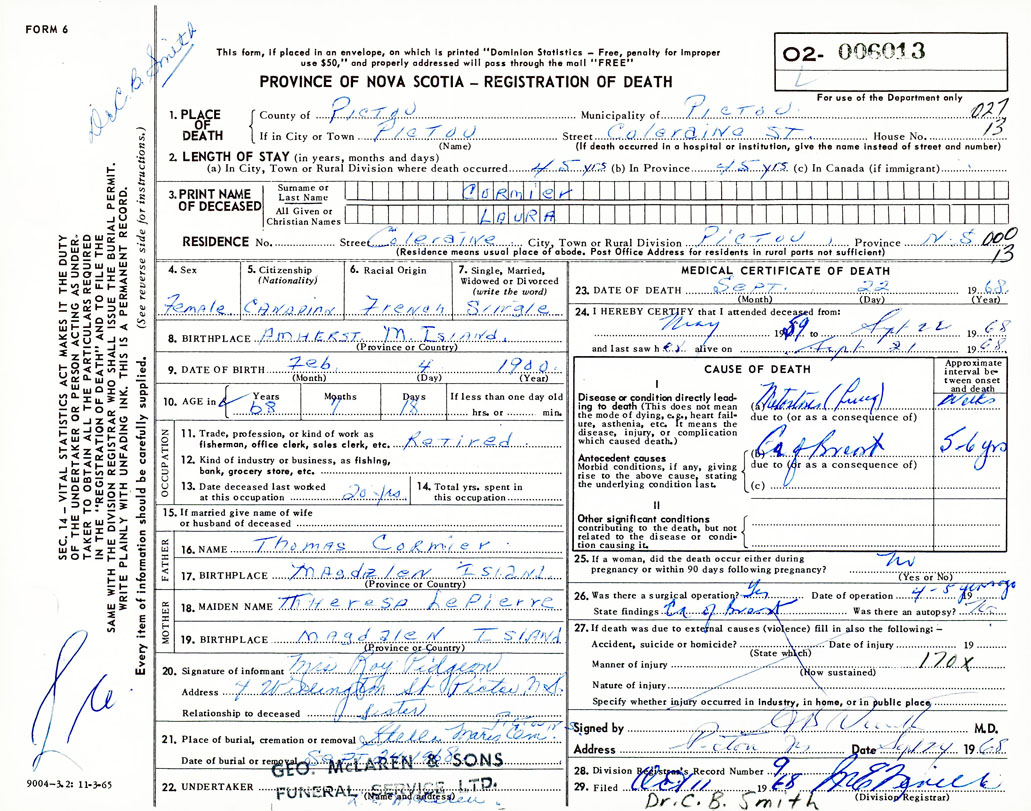 FORM 6
Dr. C. B. Smith
This form, if placed in an envelope, on which is printed "Dominion Statistics – Free, penalty for improper
use $50," and properly addressed will pass through the mail "FREE"
PROVINCE OF NOVA SCOTIA – REGISTRATION OF DEATH
02- 006013
For use of the Department only
1. PLACE OF DEATH
County of Pictou Municipality of Pictou 027
If in City or Town Pictou Street Coleraine St. House No. 13
(Name) (If death occurred in a hospital or institution, give the name instead of street and number)
2. LENGTH OF STAY (in years, months and days)
(a) In City, Town or Rural Division where death occurred 45 yrs (b) In Province 45 yrs (c) In Canada (if immigrant)
3. PRINT NAME OF DECEASED
Surname or Last Name Cormier
All Given or Christian Names LAURA
RESIDENCE No. Street Coleraine City, Town or Rural Division Pictou, Province N.S 000
(Residence means usual place of abode. Post Office Address for residents in rural parts not sufficient) 13
4. Sex Female
5. Citizenship (Nationality) Canadian
6. Racial Origin French
7. Single, Married, Widowed or Divorced (write the word) Single
8. BIRTHPLACE Amherst M. Island.
(Province or Country)
9. DATE OF BIRTH Feb 4 1900
(Month) (Day) (Year)
10. AGE in Years 68 Months 7 Days 18 If less than one day old
hrs. or min.
OCCUPATION
11. Trade, profession, or kind of work as
fisherman, office clerk, sales clerk, etc. Retired
12. Kind of industry or business, as fishing,
bank, grocery store, etc.
13. Date deceased last worked
at this occupation 20 yrs.
14. Total yrs. spent in
this occupation
15. If married give name of wife
or husband of deceased
FATHER
16. NAME Thomas Cormier
17. BIRTHPLACE Magdalen Island
(Province or Country)
MOTHER
18. MAIDEN NAME Theresa LePierre
19. BIRTHPLACE Magdalen Island
(Province or Country)
20. Signature of informant Mrs Roy Pidgeon
Address 4 Wellington St Pictou, N.S.
Relationship to deceased Sister
21. Place of burial, cremation or removal Stella Maris Cem. Pictou N S
Date of burial or removal Sept 24 1968
GEO. McLAREN & SONS
FUNERAL SERVICE LTD.
22. UNDERTAKER
(Name and address)
MEDICAL CERTIFICATE OF DEATH
23. DATE OF DEATH Sept. 22 1968.
(Month) (Day) (Year)
24. I HEREBY CERTIFY that I attended deceased from:
May 1959 to Sept 22 1968
and last saw her alive on Sept 21 1968.
CAUSE OF DEATH
Approximate interval between onset and death
I
Disease or condition directly leading to death (This does not mean the mode of dying, e.g., heart failure, asthenia, etc. It means the disease, injury, or complication which caused death.)
(a) Metastases (Lung) Weeks
due to (or as a consequence of)
Antecedent causes
Morbid conditions, if any, giving rise to the above cause, stating the underlying condition last.
(b) Ca of Breast 5-6 yrs
due to (or as a consequence of)
(c)
II
Other significant conditions
contributing to the death, but not related to the disease or condition causing it.
25. If a woman, did the death occur either during
pregnancy or within 90 days following pregnancy? No
(Yes or No)
26. Was there a surgical operation? Yes Date of operation 4-5 years ago 19
State findings Ca of Breast Was there an autopsy? No
27. If death was due to external causes (violence) fill in also the following: –
Accident, suicide or homicide? Date of injury 19
(State which)
Manner of injury 170X
(How sustained)
Nature of injury
Specify whether injury occurred in Industry, in home, or in public place
Signed by M.D.
Address Pictou NS Date Sept 24 1968
28. Division Registrar's Record Number 9
29. Filed Oct 11 1968
(Division Registrar)
Dr. C. B. Smith
SEC. 14 – VITAL STATISTICS ACT MAKES IT THE DUTY
OF THE UNDERTAKER OR PERSON ACTING AS UNDER-
TAKER TO OBTAIN ALL THE PARTICULARS REQUIRED
IN THE "REGISTRATION OF DEATH" AND TO FILE THE
SAME WITH THE DIVISION REGISTRAR WHO SHALL ISSUE THE BURIAL PERMIT.
WRITE PLAINLY WITH UNFADING INK. THIS IS A PERMANENT RECORD.
Every item of information should be carefully supplied. (See reverse side for instructions.)
9004-3.2: 11-3-65